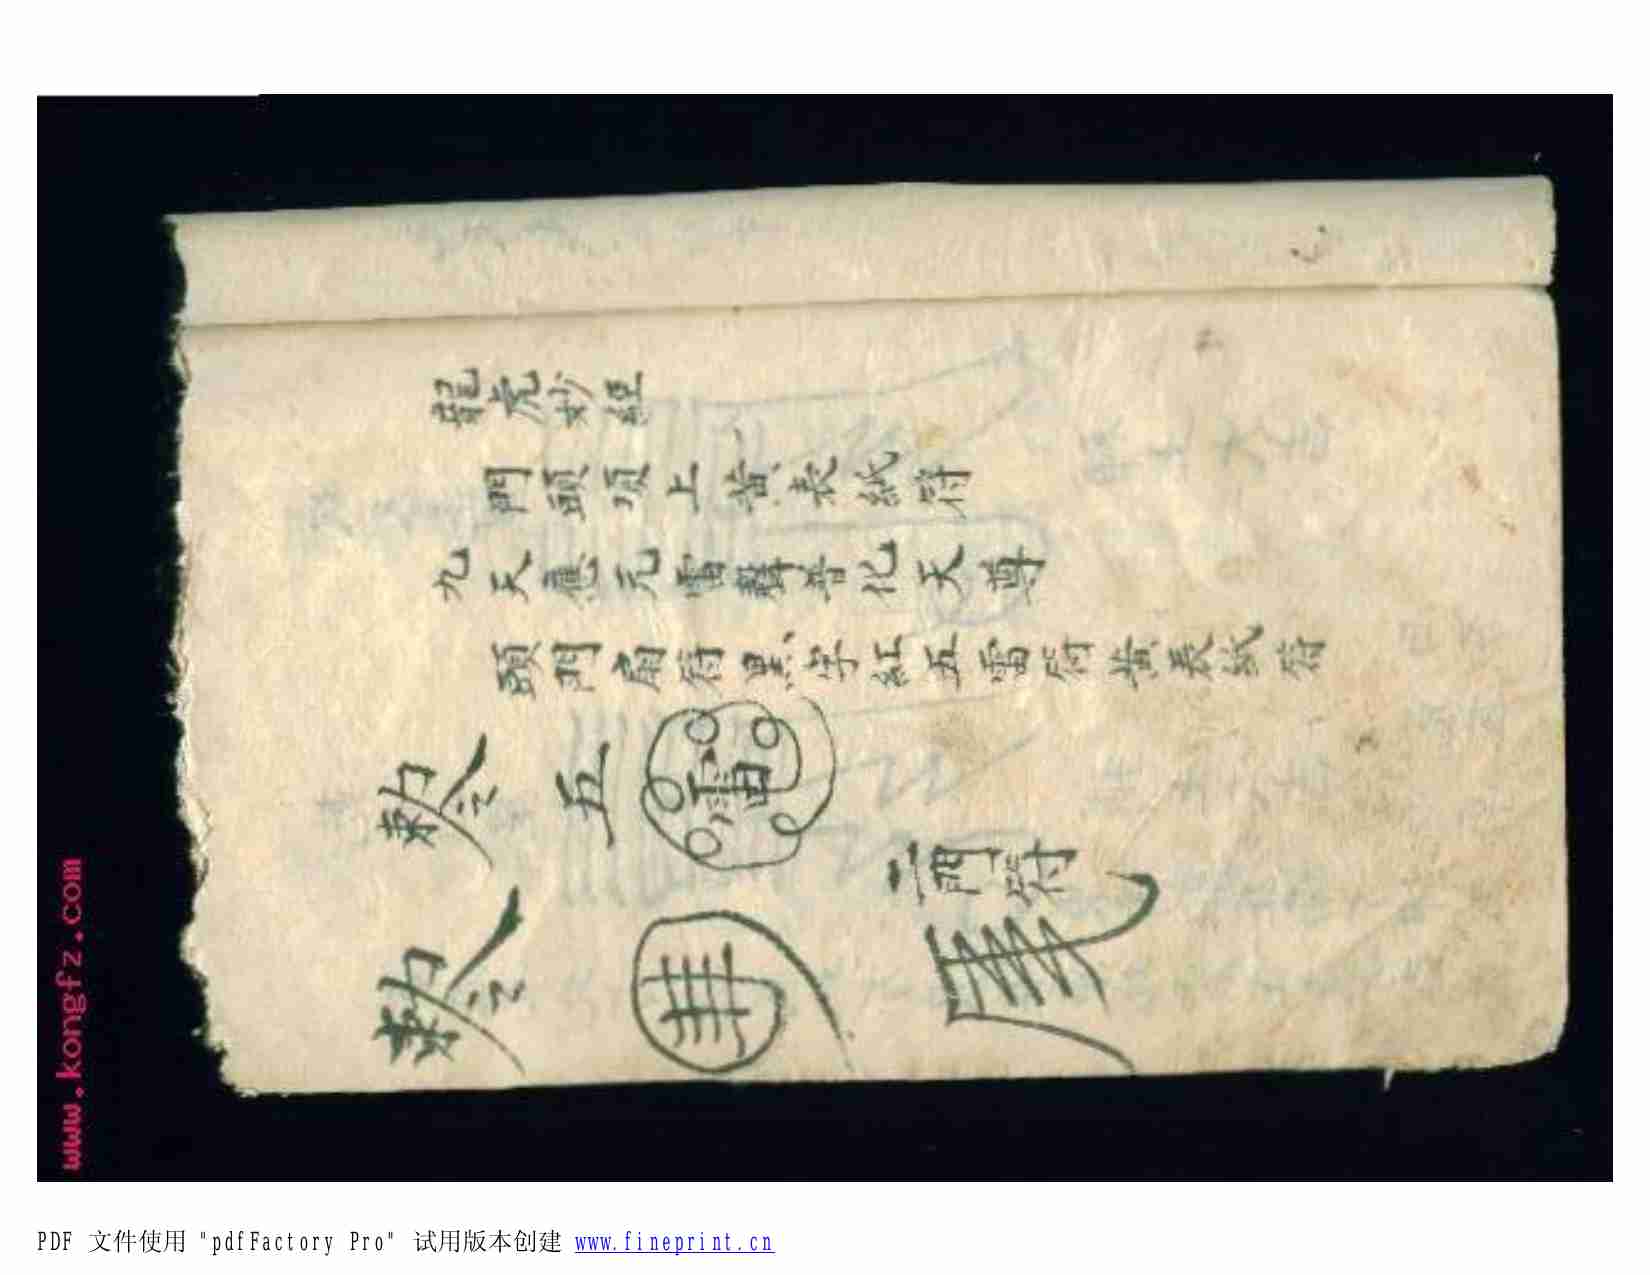 龍虎妙經
門頭項上黃表紙符
九天應元雷聲普化天尊
頭門扇符黑字紅五雷符黃表紙符
敕令 五雷
二門符
敕令
www.kongfz.com
PDF 文件使用 "pdfFactory Pro" 试用版本创建 www.fineprint.cn